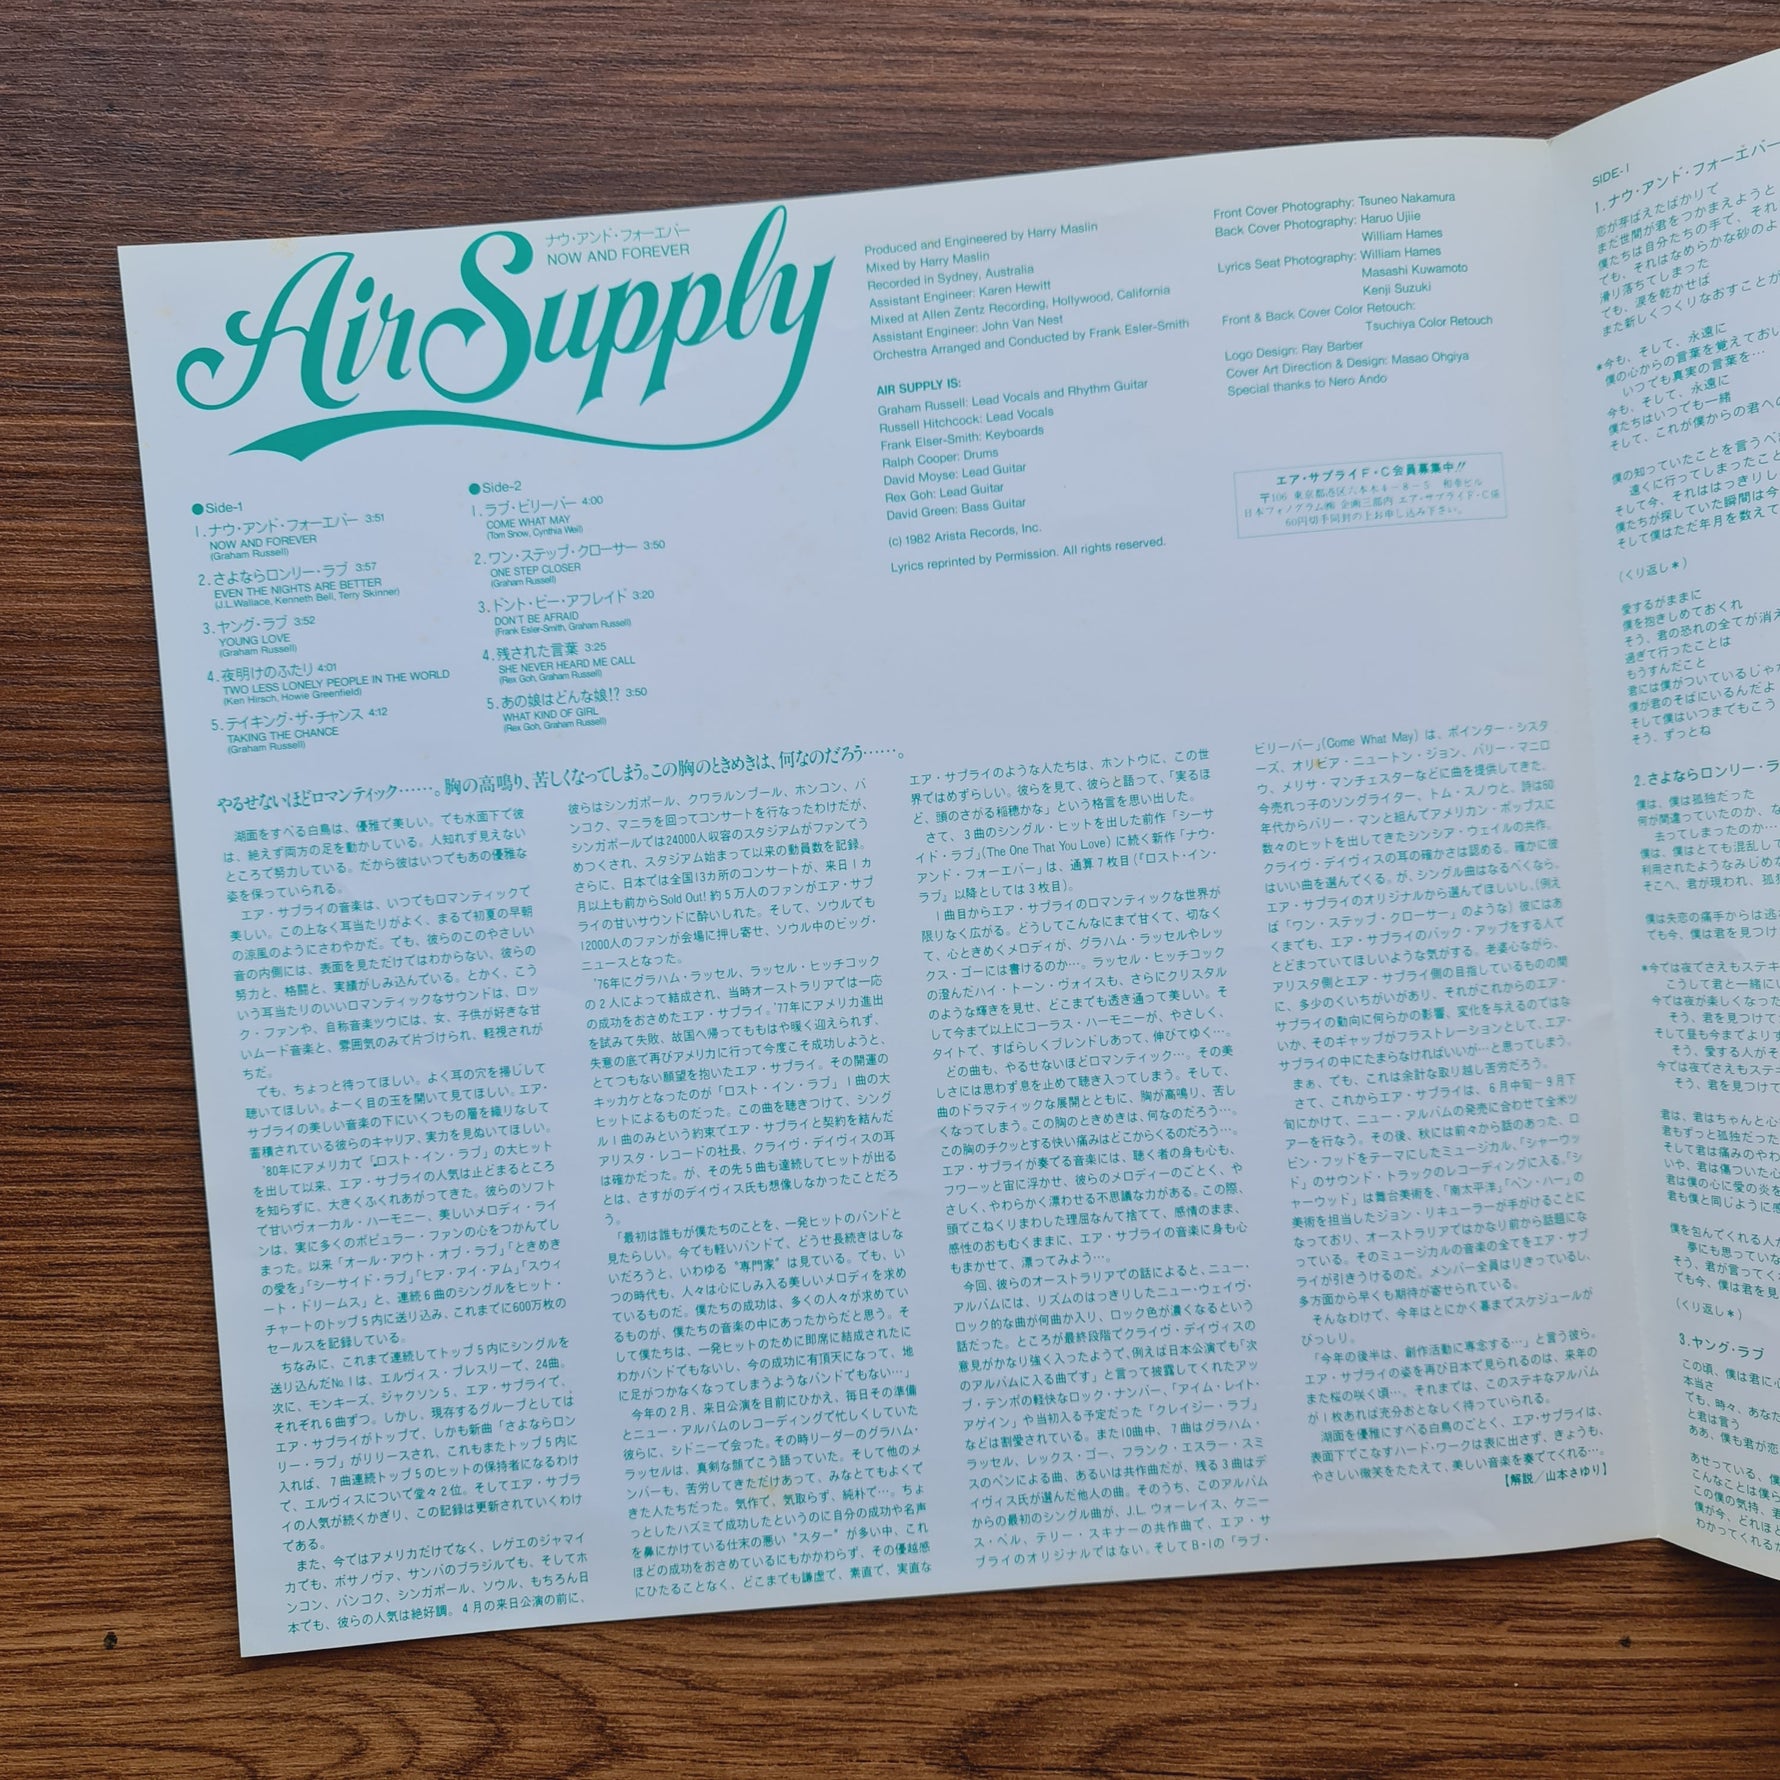 ナウ・アンド・フォーエバー
NOW AND FOREVER
Air Supply
●Side-1
1.ナウ・アンド・フォーエバー 3:51
NOW AND FOREVER
(Graham Russell)
2.さよならロンリー・ラブ 3:57
EVEN THE NIGHTS ARE BETTER
(J.L.Wallace, Kenneth Bell, Terry Skinner)
3.ヤング・ラブ 3:52
YOUNG LOVE
(Graham Russell)
4.夜明けのふたり 4:01
TWO LESS LONELY PEOPLE IN THE WORLD
(Ken Hirsch, Howie Greenfield)
5.テイキング・ザ・チャンス 4:12
TAKING THE CHANCE
(Graham Russell)
●Side-2
1.ラブ・ビリーバー 4:00
COME WHAT MAY
(Tom Snow, Cynthia Weil)
2.ワン・ステップ・クローサー 3:50
ONE STEP CLOSER
(Graham Russell)
3.ドント・ビー・アフレイド 3:20
DON'T BE AFRAID
(Frank Esler-Smith, Graham Russell)
4.残された言葉 3:25
SHE NEVER HEARD ME CALL
(Rex Goh, Graham Russell)
5.あの娘はどんな娘!? 3:50
WHAT KIND OF GIRL
(Rex Goh, Graham Russell)
Produced and Engineered by Harry Maslin
Mixed by Harry Maslin
Recorded in Sydney, Australia
Assistant Engineer: Karen Hewitt
Mixed at Allen Zentz Recording, Hollywood, California
Assistant Engineer: John Van Nest
Orchestra Arranged and Conducted by Frank Esler-Smith
AIR SUPPLY IS:
Graham Russell: Lead Vocals and Rhythm Guitar
Russell Hitchcock: Lead Vocals
Frank Elser-Smith: Keyboards
Ralph Cooper: Drums
David Moyse: Lead Guitar
Rex Goh: Lead Guitar
David Green: Bass Guitar
(c) 1982 Arista Records, Inc.
Lyrics reprinted by Permission. All rights reserved.
Front Cover Photography: Tsuneo Nakamura
Back Cover Photography: Haruo Ujiie
William Hames
Lyrics Seat Photography: William Hames
Masashi Kuwamoto
Kenji Suzuki
Front & Back Cover Color Retouch:
Tsuchiya Color Retouch
Logo Design: Ray Barber
Cover Art Direction & Design: Masao Ohgiya
Special thanks to Nero Ando
エア・サプライF・C会員募集中!!
〒106 東京都港区六本木4-8-5 和幸ビル
日本フォノグラム㈱ 企画三部内 エア・サプライF・C係
60円切手同封の上お申し込み下さい。
やるせないほどロマンティック……。胸の高鳴り、苦しくなってしまう。この胸のときめきは、何なのだろう……。
湖面をすべる白鳥は、優雅で美しい。でも水面下で彼
は、絶えず両方の足を動かしている。人知れず見えない
ところで努力している。だから彼はいつでもあの優雅な
姿を保っていられる。
エア・サプライの音楽は、いつでもロマンティックで
美しい。この上なく耳当たりがよく、まるで初夏の早朝
の涼風のようにさわやかだ。でも、彼らのこのやさしい
音の内側には、表面を見ただけではわからない、彼らの
努力と、格闘と、実績がしみ込んでいる。とかく、こう
いう耳当たりのいいロマンティックなサウンドは、ロッ
ク・ファンや、自称音楽ツウには、女、子供が好きな甘
いムード音楽と、雰囲気のみで片づけられ、軽視されが
ちだ。
でも、ちょっと待ってほしい。よく耳の穴を掃じして
聴いてほしい。よーく目の玉を開いて見てほしい。エア・
サプライの美しい音楽の下にいくつもの層を織りなして
蓄積されている彼らのキャリア、実力を見ぬいてほしい。
'80年にアメリカで「ロスト・イン・ラブ」の大ヒット
を出して以来、エア・サプライの人気は止どまるところ
を知らずに、大きくふくれあがってきた。彼らのソフト
で甘いヴォーカル・ハーモニー、美しいメロディ・ライ
ンは、実に多くのポピュラー・ファンの心をつかんでし
まった。以来「オール・アウト・オブ・ラブ」「ときめき
の愛を」「シーサイド・ラブ」「ヒア・アイ・アム」「スウィ
ート・ドリームス」と、連続6曲のシングルをヒット・
チャートのトップ5内に送り込み、これまでに600万枚の
セールスを記録している。
ちなみに、これまで連続してトップ5内にシングルを
送り込んだNo.1は、エルヴィス・プレスリーで、24曲。
次に、モンキーズ、ジャクソン5、エア・サプライで、
それぞれ6曲ずつ。しかし、現存するグループとしては
エア・サプライがトップで、しかも新曲「さよならロン
リー・ラブ」がリリースされ、これもまたトップ5内に
入れば、7曲連続トップ5のヒットの保持者になるわけ
で、エルヴィスについで堂々2位。そしてエア・サプラ
イの人気が続くかぎり、この記録は更新されていくわけ
である。
また、今ではアメリカだけでなく、レゲエのジャマイ
カでも、ボサノヴァ、サンバのブラジルでも、そしてホ
ンコン、バンコク、シンガポール、ソウル、もちろん日
本でも、彼らの人気は絶好調。4月の来日公演の前に、
彼らはシンガポール、クワラルンプール、ホンコン、バ
ンコク、マニラを回ってコンサートを行なったわけだが、
シンガポールでは24000人収容のスタジアムがファンでう
めつくされ、スタジアム始まって以来の動員数を記録。
さらに、日本では全国13カ所のコンサートが、来日1カ
月以上も前からSold Out!! 約5万人のファンがエア・サプ
ライの甘いサウンドに酔いしれた。そして、ソウルでも
12000人のファンが会場に押し寄せ、ソウル中のビッグ・
ニュースとなった。
'76年にグラハム・ラッセル、ラッセル・ヒッチコック
の2人によって結成され、当時オーストラリアでは一応
の成功をおさめたエア・サプライ。'77年にアメリカ進出
を試みて失敗、故国へ帰ってももはや暖く迎えられず、
失意の底で再びアメリカに行って今度こそ成功しようと、
とてつもない願望を抱いたエア・サプライ。その開運の
キッカケとなったのが「ロスト・イン・ラブ」1曲の大
ヒットによるものだった。この曲を聴きつけて、シング
ル1曲のみという約束でエア・サプライと契約を結んだ
アリスタ・レコードの社長、クライヴ・デイヴィスの耳
は確かだった。が、その先5曲も連続してヒットが出る
とは、さすがのデイヴィス氏も想像しなかったことだろ
う。
「最初は誰もが僕たちのことを、一発ヒットのバンドと
見たらしい。今でも軽いバンドで、どうせ長続きはしな
いだろうと、いわゆる"専門家"は見ている。でも、い
つの時代も、人々は心にしみ入る美しいメロディを求め
ているものだ。僕たちの成功は、多くの人々が求めてい
るものが、僕たちの音楽の中にあったからだと思う。そ
して僕たちは、一発ヒットのために即席に結成されたに
わかバンドでもないし、今の成功に有頂天になって、地
に足がつかなくなってしまうようなバンドでもない…」
今年の2月、来日公演を目前にひかえ、毎日その準備
とニュー・アルバムのレコーディングで忙しくしていた
彼らに、シドニーで会った。その時リーダーのグラハム・
ラッセルは、真剣な顔でこう語っていた。そして他のメ
ンバーも、苦労してきただけあって、みなとてもよくで
きた人たちだった。気作で、気取らず、純朴で…。ちょ
っとしたハズミで成功したというのに自分の成功や名声
を鼻にかけている仕末の悪い"スター"が多い中、これ
ほどの成功をおさめているにもかかわらず、その優越感
にひたることなく、どこまでも謙虚で、素直で、実直な
エア・サプライのような人たちは、ホントウに、この世
界ではめずらしい。彼らを見て、彼らと語って、「実るほ
ど、頭のさがる稲穂かな」という格言を思い出した。
さて、3曲のシングル・ヒットを出した前作「シーサ
イド・ラブ」(The One That You Love) に続く新作「ナウ・
アンド・フォーエバー」は、通算7枚目(「ロスト・イン・
ラブ」以降としては3枚目)。
1曲目からエア・サプライのロマンティックな世界が
限りなく広がる。どうしてこんなにまで甘くて、切なく
て、心ときめくメロディが、グラハム・ラッセルやレッ
クス・ゴーには書けるのか…。ラッセル・ヒッチコック
の澄んだハイ・トーン・ヴォイスも、さらにクリスタル
のような輝きを見せ、どこまでも透き通って美しい。そ
して今まで以上にコーラス・ハーモニーが、やさしく、
タイトで、すばらしくブレンドしあって、伸びてゆく…。
どの曲も、やるせないほどロマンティック…。その美
しさには思わず息を止めて聴き入ってしまう。そして、
曲のドラマティックな展開とともに、胸が高鳴り、苦し
くなってしまう。この胸のときめきは、何なのだろう…。
この胸のチクッとする快い痛みはどこからくるのだろう…。
エア・サプライが奏でる音楽には、聴く者の身も心も、
フワーッと宙に浮かせ、彼らのメロディーのごとく、や
さしく、やわらかく漂わせる不思議な力がある。この際、
頭でこねくりまわした理屈なんて捨てて、感情のまま、
感性のおもむくままに、エア・サプライの音楽に身も心
もまかせて、漂ってみよう…。
今回、彼らのオーストラリアでの話によると、ニュー・
アルバムには、リズムのはっきりしたニュー・ウェイヴ・
ロック的な曲が何曲か入り、ロック色が濃くなるという
話だった。ところが最終段階でクライヴ・デイヴィスの
意見がかなり強く入ったようで、例えば日本公演でも「次
のアルバムに入る曲です」と言って披露してくれたアッ
プ・テンポの軽快なロック・ナンバー、「アイム・レイト・
アゲイン」や当初入る予定だった「クレイジー・ラブ」
などは割愛されている。また10曲中、7曲はグラハム・
ラッセル、レックス・ゴー、フランク・エスラー・スミ
スのペンによる曲、あるいは共作曲だが、残る3曲はデ
イヴィス氏が選んだ他人の曲。そのうち、このアルバム
からの最初のシングル曲が、J.L.ウォーレイス、ケニー
ス・ベル、テリー・スキナーの共作曲で、エア・サ
プライのオリジナルではない。そしてB・1の「ラブ・
ビリーバー」(Come What May) は、ポインター・シスタ
ーズ、オリビア・ニュートン・ジョン、バリー・マニロ
ウ、メリサ・マンチェスターなどに曲を提供してきた、
今売れっ子のソングライター、トム・スノウと、詩は60
年代からバリー・マンと組んでアメリカン・ポップスに
数々のヒットを出してきたシンシア・ウェイルの共作。
クライヴ・デイヴィスの耳の確かさは認める。確かに彼
はいい曲を選んでくる。が、シングル曲はなるべくなら、
エア・サプライのオリジナルから選んでほしいし、(例え
ば「ワン・ステップ・クローサー」のような) 彼にはあ
くまでも、エア・サプライのバック・アップをする人で
とどまっていてほしいような気がする。老婆心ながら、
アリスタ側とエア・サプライ側の目指しているものの間
に、多少のくいちがいがあり、それがこれからのエア・
サプライの動向に何らかの影響、変化を与えるのではな
いか、そのギャップがフラストレーションとして、エア・
サプライの中にたまらなければいいが…と思ってしまう。
まぁ、でも、これは余計な取り越し苦労だろう。
さて、これからエア・サプライは、6月中旬~9月下
旬にかけて、ニュー・アルバムの発売に合わせて全米ツ
アーを行なう。その後、秋には前々から話のあった、ロ
ビン・フッドをテーマにしたミュージカル、「シャーウッ
ド」のサウンド・トラックのレコーディングに入る。「シ
ャーウッド」は舞台美術を、「南太平洋」「ベン・ハー」の
美術を担当したジョン・リキューラーが手がけることに
なっており、オーストラリアではかなり前から話題にな
っている。そのミュージカルの音楽の全てをエア・サプ
ライが引きうけるのだ。メンバー全員はりきっているし、
多方面から早くも期待が寄せられている。
そんなわけで、今年はとにかく暮までスケジュールが
びっしり。
「今年の後半は、創作活動に専念する…」と言う彼ら。
エア・サプライの姿を再び日本で見られるのは、来年の
また桜の咲く頃…。それまでは、このステキなアルバム
が1枚あれば充分おとなしく待っていられる。
湖面を優雅にすべる白鳥のごとく、エア・サプライは、
表面下でこなすハード・ワークは表に出さず、きょうも、
やさしい微笑をたたえて、美しい音楽を奏でてくれる…。
【解説/山本さゆり】
SIDE-1
1.ナウ・アンド・フォーエバー
恋が芽ばえたばかりで
まだ世間が君をつかまえようと
僕たちは自分たちの手で、それ
でも、それはなめらかな砂のよ
滑り落ちてしまった
でも、涙を乾かせば
また新しくつくりなおすことが
*今も、そして、永遠に
僕の心からの言葉を覚えておい
いつでも真実の言葉を…
今も、そして、永遠に
僕たちはいつでも一緒
そして、これが僕からの君への
僕の知っていたことを言うべ
遠くに行ってしまったこと
そして今、それははっきりし
僕たちが探していた瞬間は今
そして僕はただ年月を数えて
(くり返し*)
愛するがままに
僕を抱きしめておくれ
そう、君の恐れの全てが消え
過ぎて行ったことは
もうすんだこと
君には僕がついているじゃな
僕が君のそばにいるんだよ
そして僕はいつまでもこう
そう、ずっとね
2.さよならロンリー・ラ
僕は、僕は孤独だった
何が間違っていたのか、な
去ってしまったのか…
僕は、僕はとても混乱して
利用されたようなみじめ
そこへ、君が現われ、孤
僕は失恋の痛手からは逃
でも今、僕は君を見つけ
*今では夜でさえもステキ
こうして君と一緒に
今では夜が楽しくなった
そう、君を見つけて
そして昼も今までより
そう、愛する人がそ
今では夜でさえもステ
そう、君を見つけて
君は、君はちゃんと心
君もずっと孤独だった
そして君は痛みのやわ
いや、君は傷ついた心
君は僕の心に愛の炎を
君も僕と同じように
僕を包んでくれる人
夢にも思っていな
そう、君が言ってく
でも今、僕は君を見
(くり返し*)
3.ヤング・ラブ
この頃、僕は君に
本当さ
でも、時々、あな
と君は言う
ああ、僕も君が恋
あせっている、僕
こんなことは僕ら
この僕の気持、君
僕が今、どれほど
わかってくれるか